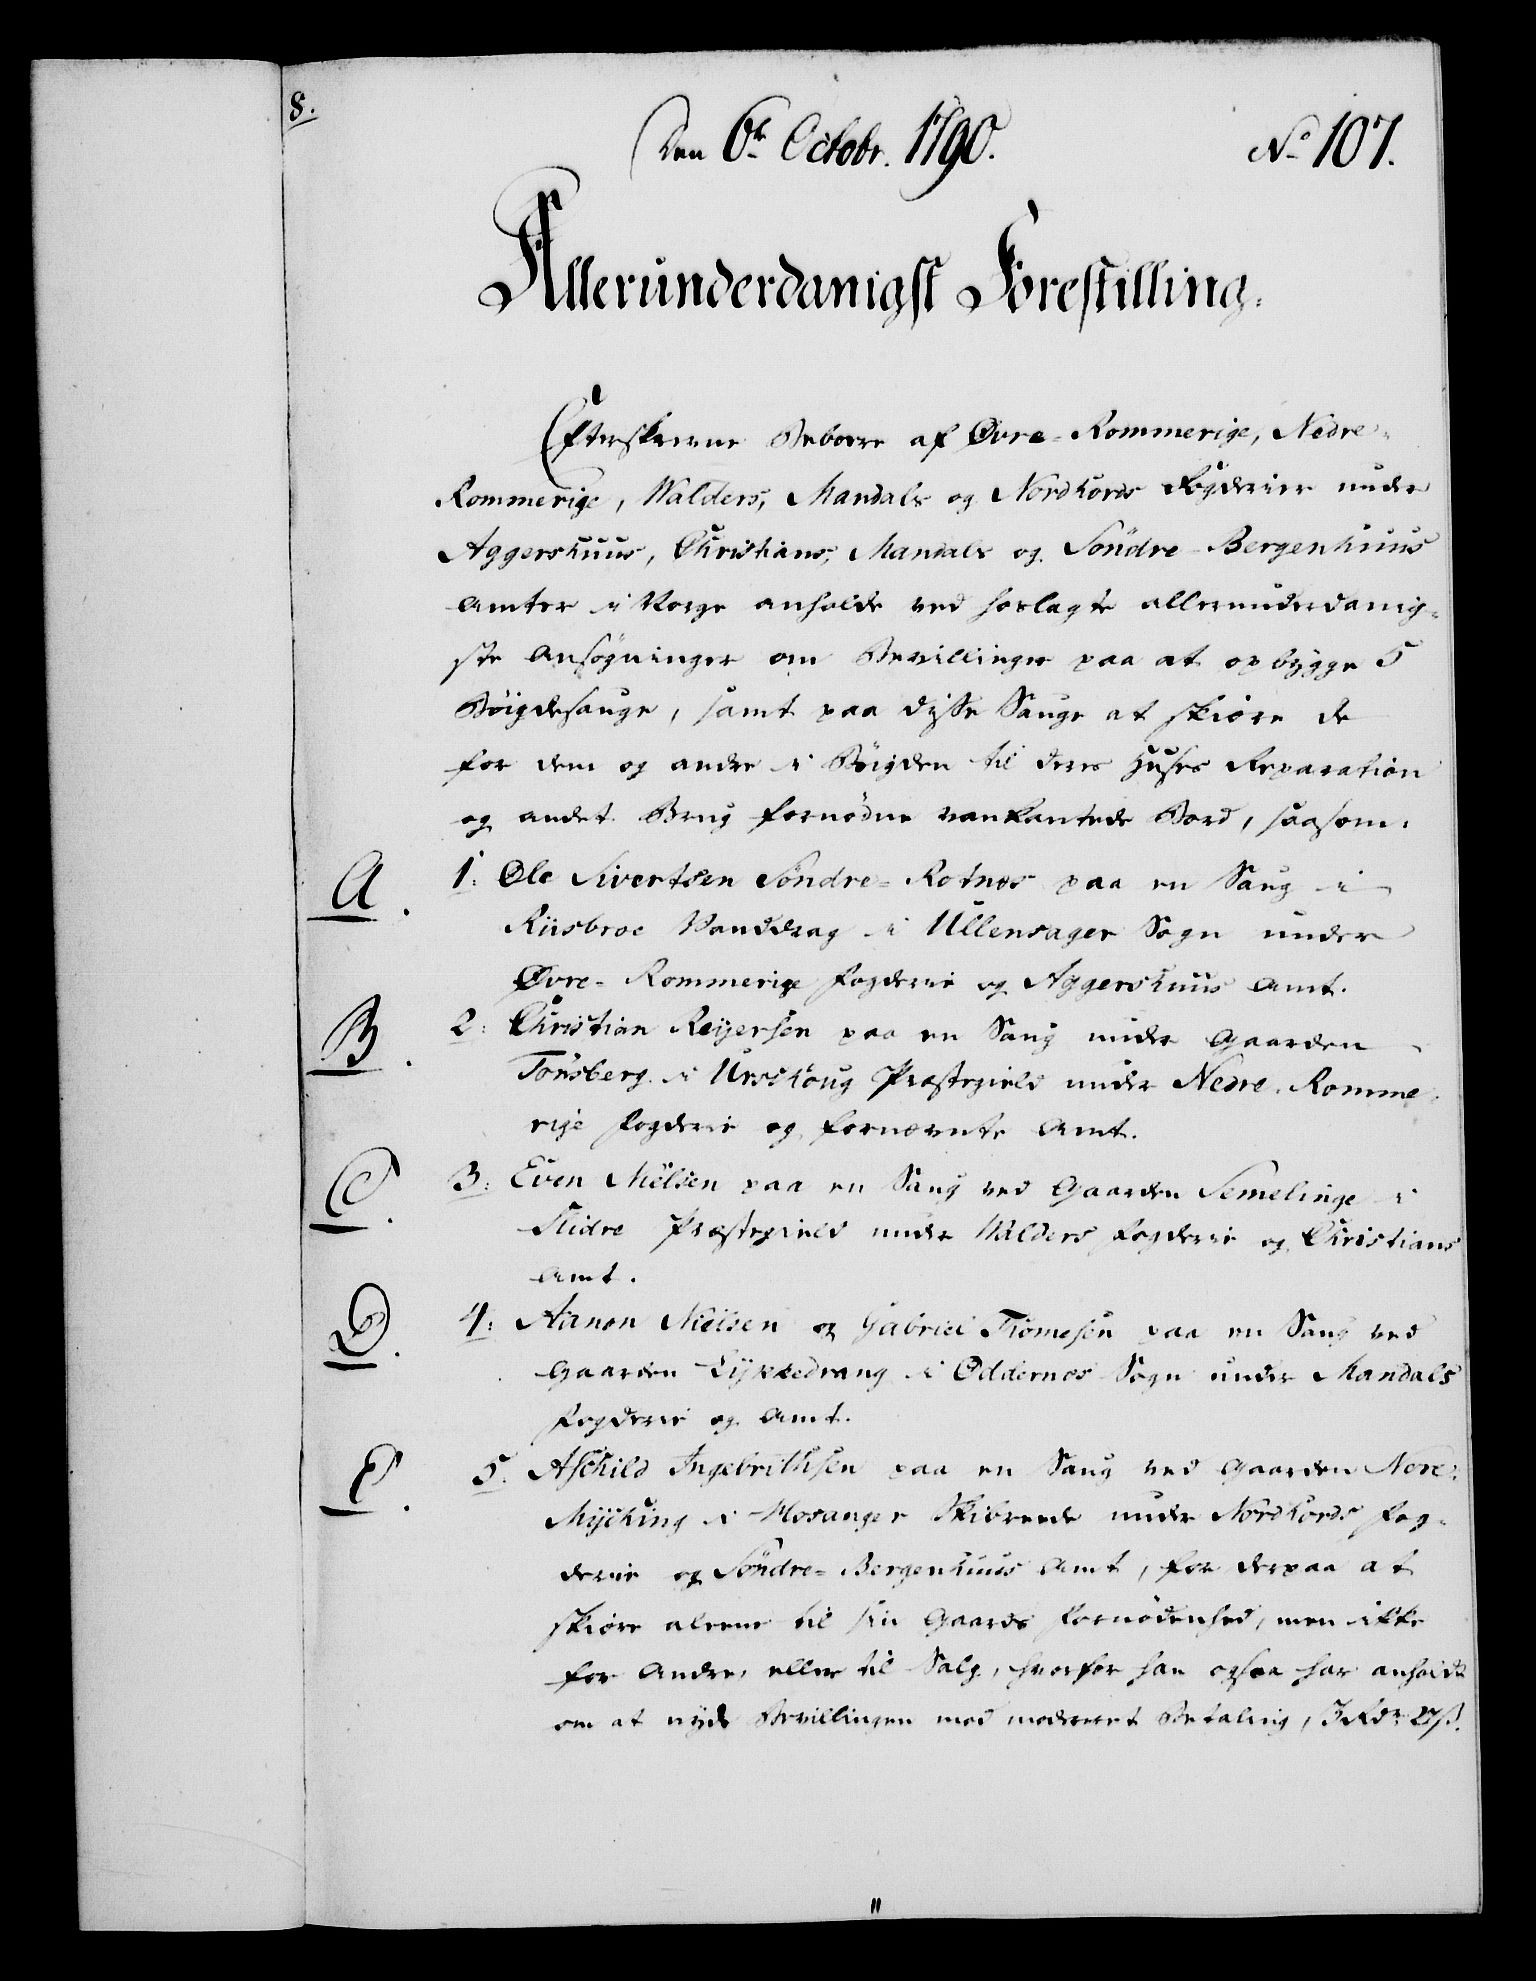 8.
Den 6te Octobr. 1790.
No 107.
Allerunderdanigst Forestilling.
Efterskrevne Beboere af Øvre-Rommerige, Nedre-
Rommerige, Walders, Mandals og Nordhords Fogderier under
Aggershuus, Christians, Mandals og Söndre-Bergenhuus
Amter i Norge anholde ved hoslagte allerunderdanig-
ste Ansögninger om Bevillinger paa at opbygge 5
Böigdesauge, samt paa disse Sauge at skiöre de
for dem og andre i Böigden til deres Huses Reparation
og andet Brug fornödne vankantede Bord, saasom:
A.
1: Ole Sivertsen Söndre-Rotnes paa en Saug i
Riisbroe Vanddrag i Ullensager Sogn under
Øvre-Rommerige Fogderie og Aggershuus Amt.
B.
2: Christian Reijersen paa en Saug under Gaarden
Tönsberg i Urschoug Præstegield under Nedre-Romme-
rige Fogderie og fornævnte Amt.
C.
3: Even Nielsen paa en Saug ved Gaarden Semelinge i
Slidre Præstegield under Walders Fogderie og Christians
Amt.
D.
4: Aanon Nielsen og Gabriel Tiomesen paa en Saug ved
Gaarden Lykkedrang i Oddernes Sogn under Mandals
Fogderie og Amt.
E.
5. Aschild Ingebrithsen paa en Saug ved Gaarden Nore-
Myching i Hosanger Skibreede under Nordhords Fog-
derie og Söndre-Bergenhuus Amt, for derpaa at
skiöre aleene til sin Gaards Fornödenhed, men ikke
for Andre, eller til Salg, hvorfor han ogsaa har anholdt
om at nyde Bevillingen mod modereret Betaling, 3 Rdr